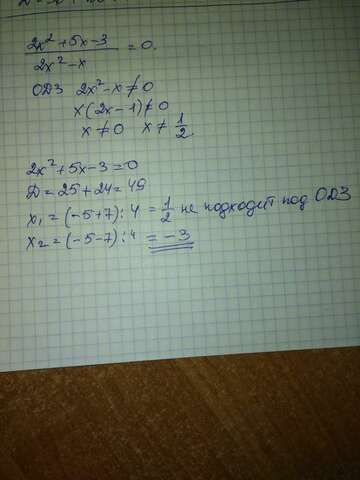 2x² + 5x - 3
2x² - x
= 0.
ОДЗ 2x² - x ≠ 0
x(2x - 1) ≠ 0
x ≠ 0 x ≠ 1/2
2x² + 5x - 3 = 0
D = 25 + 24 = 49
x₁ = (-5+7) : 4 = 1/2 не подходит под ОДЗ
x₂ = (-5-7) : 4 = -3